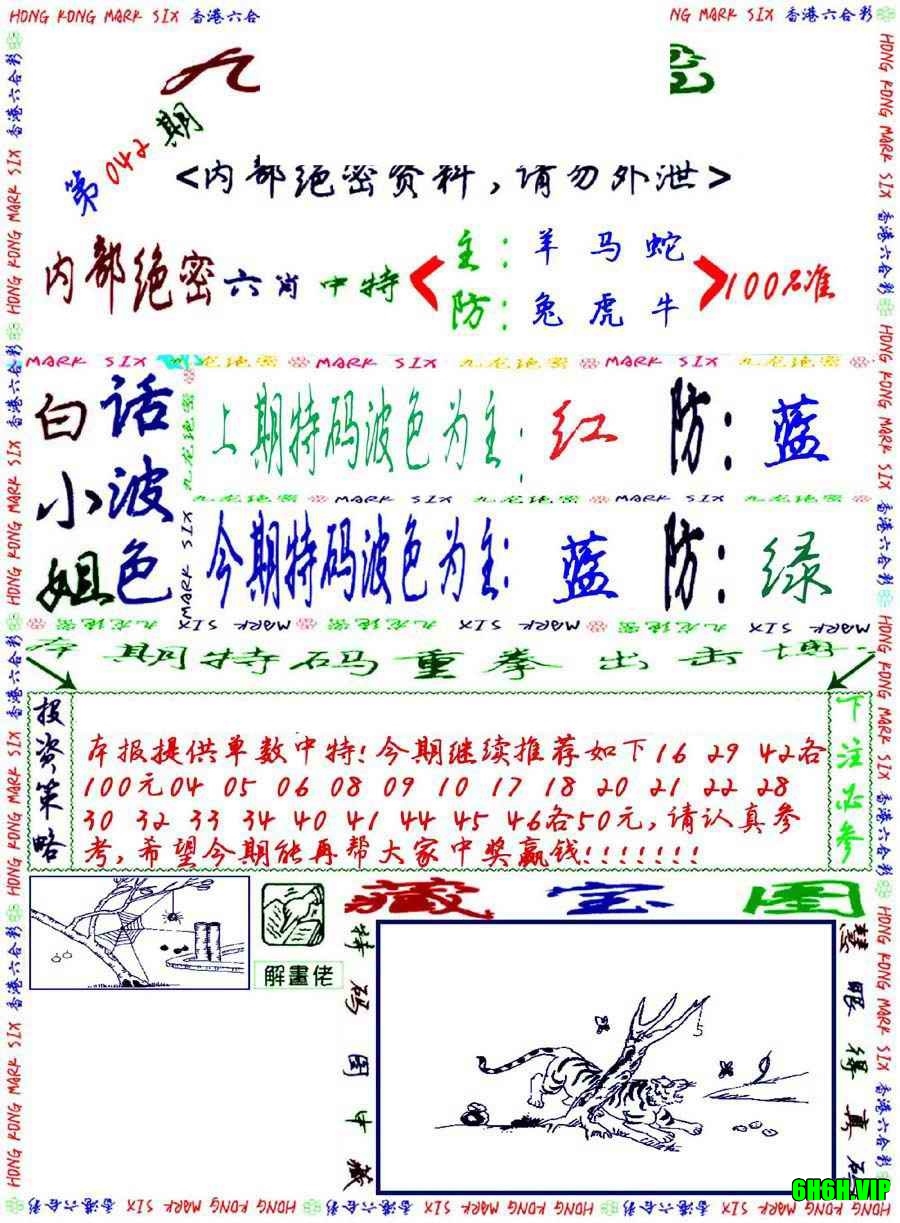 HONG KONG MARK SIX 香港六合
NG MARK SIX 香港六合彩
九
密
第042期
<内部绝密资料，请勿外泄>
内部绝密六肖中特
主：羊 马 蛇
防：兔 虎 牛
100%准
MARK SIX 九龙绝密 MARK SIX 九龙绝密 MARK SIX 九龙绝密
白话
小波
姐色
上期特码波色为主：红 防：蓝
九龙绝密 MARK SIX 九龙绝密 MARK SIX 九龙绝密
今期特码波色为主：蓝 防：绿
MARK SIX 九龙绝密 MARK SIX 九龙绝密 MARK SIX 九龙绝密
本期特码重拳出击
投资策略
本报提供单数中特!今期继续推荐如下16 29 42各
100元04 05 06 08 09 10 17 18 20 21 22 28
30 32 33 34 40 41 44 45 46各50元,请认真参
考,希望今期能再帮大家中奖赢钱!!!!!!!
下注必参
藏宝图
解畫佬
特码图中藏
慧眼得真码
5
6H6H.VIP
HONG KONG MARK SIX 香港六合彩